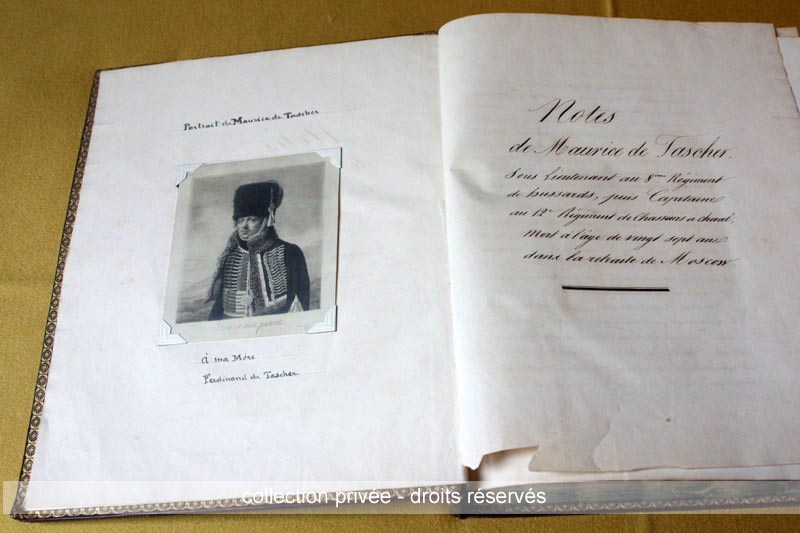 Portrait de Maurice de Tascher
à ma Mère
Ferdinand de Tascher
Notes
de Maurice de Tascher,
Sous Lieutenant au 8me Régiment
de hussards, puis Capitaine
au 12e Régiment de Chasseurs à cheval,
Mort à l'âge de vingt sept ans
dans la retraite de Moscow
collection privée - droits réservés